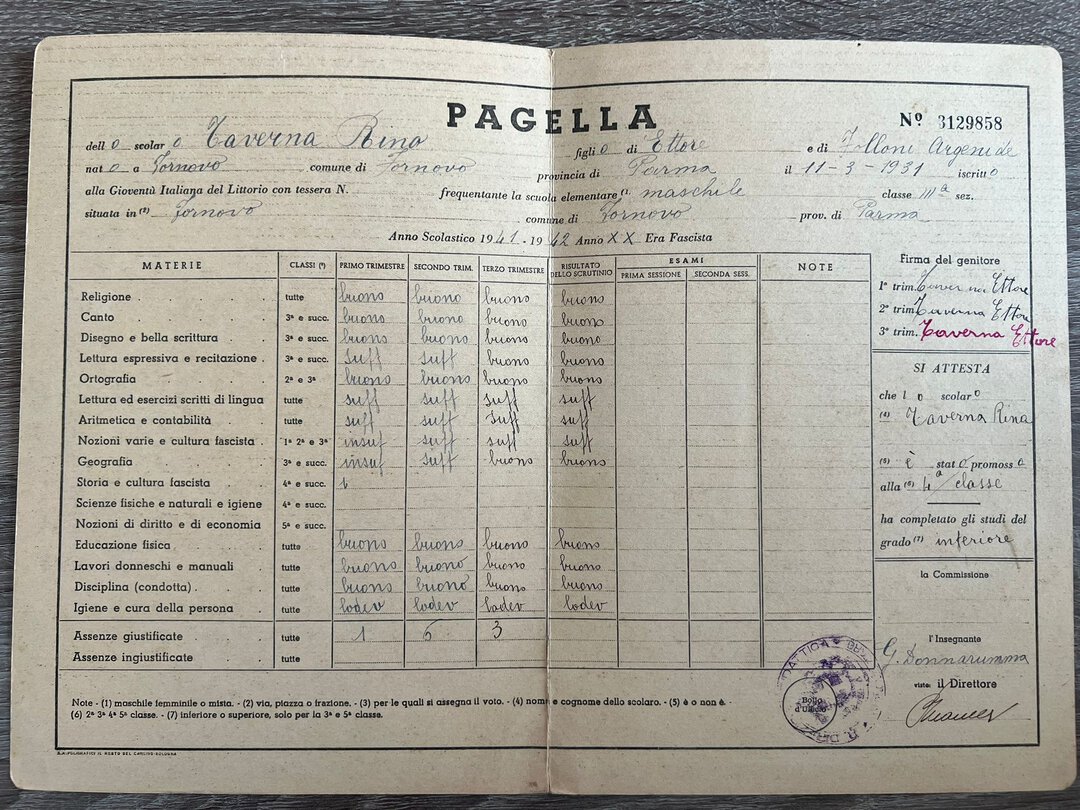 PAGELLA
Nº 3129858
dell o scolar o Taverna Rino figli o di Ettore e di Folloni Argenide
nat o a Fornovo comune di Fornovo provincia di Parma il 11-3-1931 iscritt o
alla Gioventù Italiana del Littorio con tessera N. frequentante la scuola elementare (1) maschile classe IIIª sez.
situata in (2) Fornovo comune di Fornovo prov. di Parma
Anno Scolastico 1941-1942 Anno XX Era Fascista
MATERIE CLASSI (3) PRIMO TRIMESTRE SECONDO TRIM. TERZO TRIMESTRE RISULTATO DELLO SCRUTINIO ESAMI PRIMA SESSIONE SECONDA SESS. NOTE
Religione tutte buono buono buono buono
Canto 3ª e succ. buono buono buono buono
Disegno e bella scrittura 3ª e succ. buono buono buono buono
Lettura espressiva e recitazione 3ª e succ. suff suff buono buono
Ortografia 2ª e 3ª buono buono buono buono
Lettura ed esercizi scritti di lingua tutte suff suff suff suff
Aritmetica e contabilità tutte suff suff suff suff
Nozioni varie e cultura fascista 1ª 2ª e 3ª insuf suff suff suff
Geografia 3ª e succ. insuf suff buono buono
Storia e cultura fascista 4ª e succ.
Scienze fisiche e naturali e igiene 4ª e succ.
Nozioni di diritto e di economia 5ª e succ.
Educazione fisica tutte buono buono buono buono
Lavori donneschi e manuali tutte buono buono buono buono
Disciplina (condotta) tutte buono buono buono buono
Igiene e cura della persona tutte lodev lodev lodev lodev
Assenze giustificate tutte 1 6 3
Assenze ingiustificate tutte
Firma del genitore
1º trim. Taverna Ettore
2º trim. Taverna Ettore
3º trim. Taverna Ettore
SI ATTESTA
che l o scolar o
(4) Taverna Rina
(5) è stat o promoss o
alla (6) 4ª classe
ha completato gli studi del
grado (7) inferiore
la Commissione
l'Insegnante
G. Donnarumma
visto: il Direttore
Bollo d'Ufficio
Note - (1) maschile femminile o mista. - (2) via, piazza o frazione. - (3) per le quali si assegna il voto. - (4) nome e cognome dello scolaro. - (5) è o non è. -
(6) 2ª 3ª 4ª 5ª classe. - (7) inferiore o superiore, solo per la 3ª e 5ª classe.
S.A. POLIGRAFICI IL RESTO DEL CARLINO-BOLOGNA